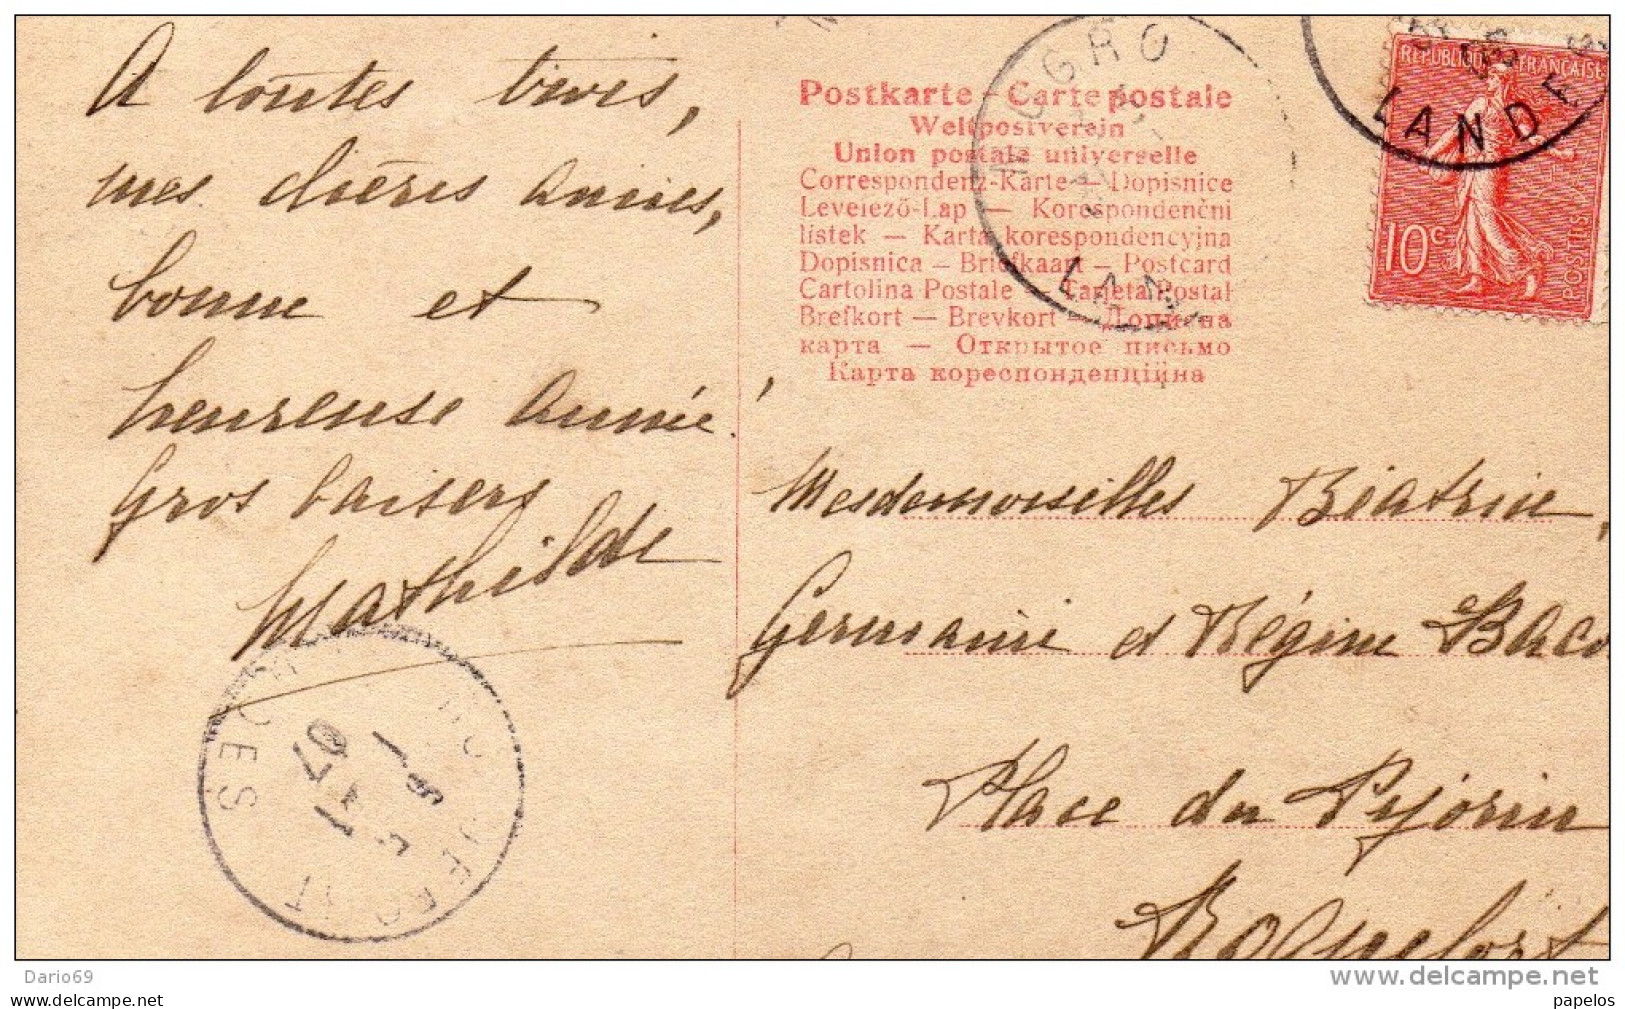 A toutes trois,
mes chères amies,
bonne et
heureuse année!
Gros baisers
Mathilde
Postkarte – Carte postale
Weltpostverein
Union postale universelle
Correspondenz-Karte – Dopisnice
Levelező-Lap – Korespondenční
lístek – Karta korespondencyjna
Dopisnica – Briefkaart – Postcard
Cartolina Postale – Tarjeta Postal
Brefkort – Brevkort – Дописна
карта – Открытое письмо
Карта кореспонденційна
REPUBLIQUE FRANÇAISE
10c
POSTES
LANDES
Mesdemoiselles Béatrice,
Germaine et Régine
Place du
Roquefort
07
Dario69
delcampe.net
papelos